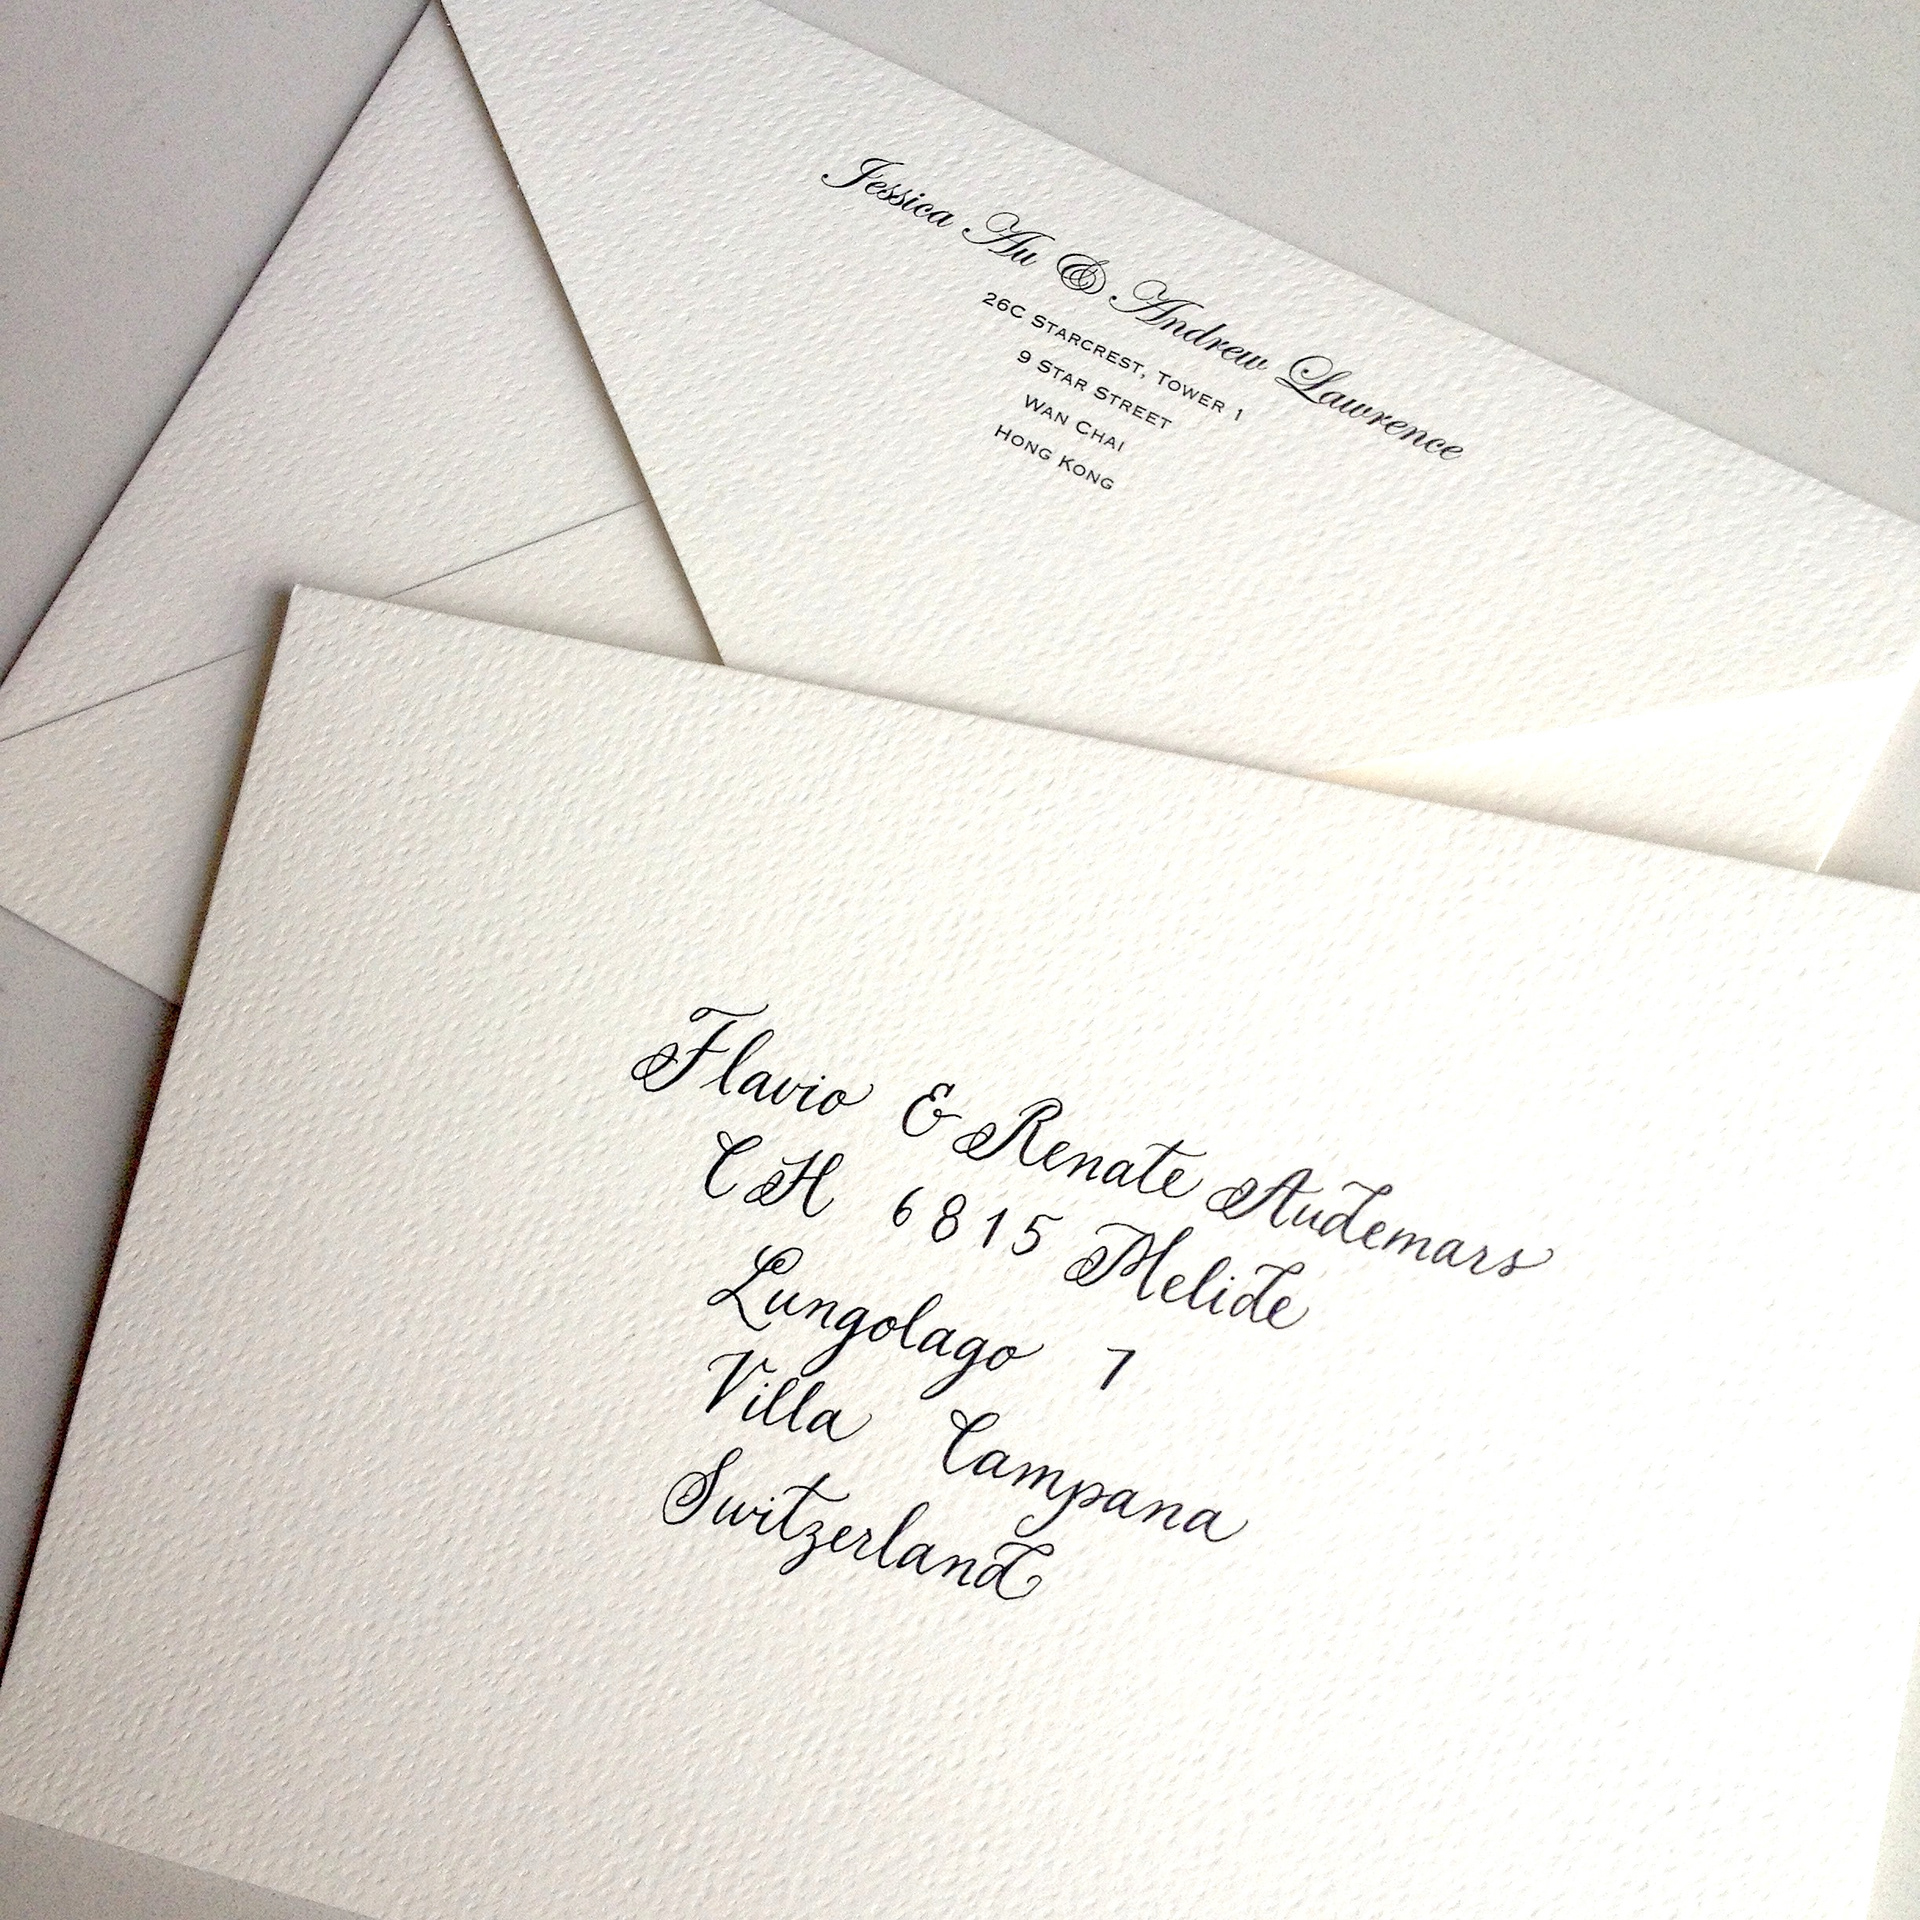 Jessica Au & Andrew Lawrence
26C Starcrest, Tower 1
9 Star Street
Wan Chai
Hong Kong
Flavio & Renate Audemars
CH 6815 Melide
Lungolago 7
Villa Campana
Switzerland